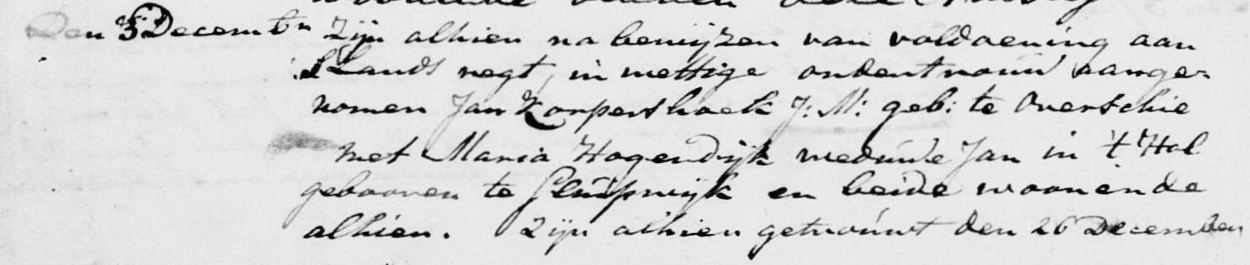 Den 5 Decembr Zijn alhier na bewijzen van voldoening aan
'S Lands regt, in wettige ondertrouw aange-
nomen Jan Korpershoek J: M: geb: te Overschie
met Maria Hogendijk weduwe Jan in 't Hol
gebooren te Sluipwijk en beide woonende
alhier. Zijn alhier getrouwt den 26 December